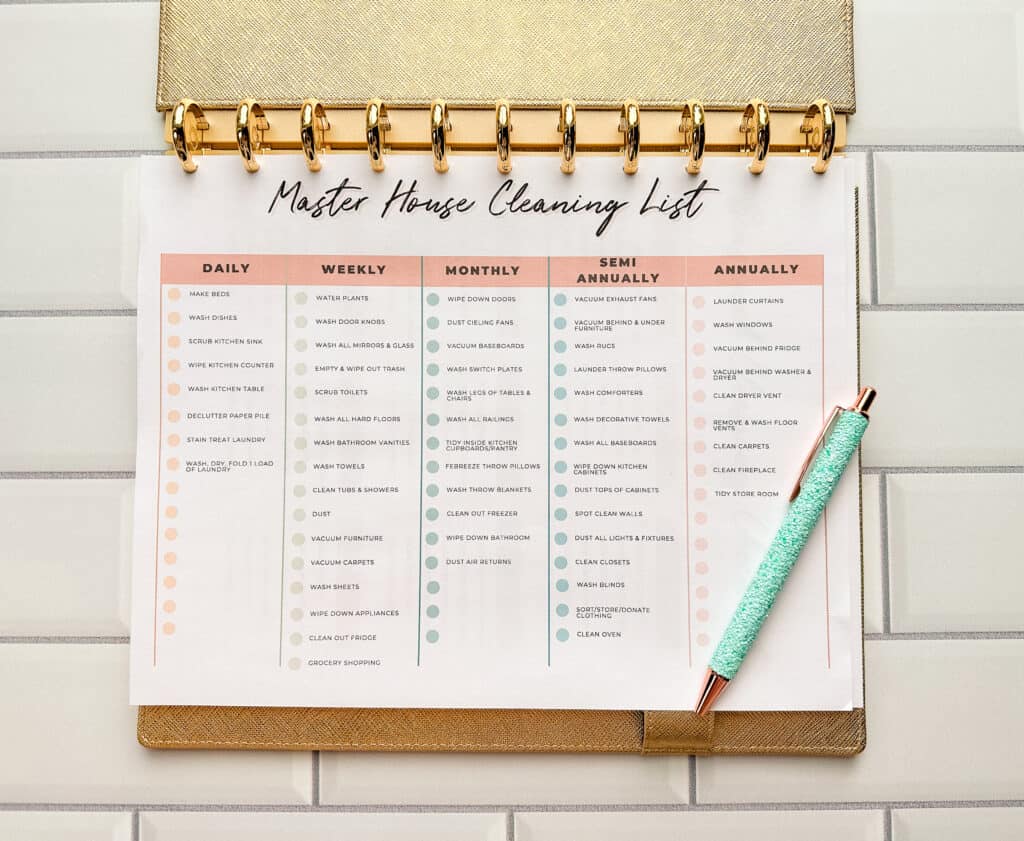 Master House Cleaning List
DAILY
MAKE BEDS
WASH DISHES
SCRUB KITCHEN SINK
WIPE KITCHEN COUNTER
WASH KITCHEN TABLE
DECLUTTER PAPER PILE
STAIN TREAT LAUNDRY
WASH, DRY, FOLD 1 LOAD
OF LAUNDRY
WEEKLY
WATER PLANTS
WASH DOOR KNOBS
WASH ALL MIRRORS & GLASS
EMPTY & WIPE OUT TRASH
SCRUB TOILETS
WASH ALL HARD FLOORS
WASH BATHROOM VANITIES
WASH TOWELS
CLEAN TUBS & SHOWERS
DUST
VACUUM FURNITURE
VACUUM CARPETS
WASH SHEETS
WIPE DOWN APPLIANCES
CLEAN OUT FRIDGE
GROCERY SHOPPING
MONTHLY
WIPE DOWN DOORS
DUST CIELING FANS
VACUUM BASEBOARDS
WASH SWITCH PLATES
WASH LEGS OF TABLES &
CHAIRS
WASH ALL RAILINGS
TIDY INSIDE KITCHEN
CUPBOARDS/PANTRY
FEBREEZE THROW PILLOWS
WASH THROW BLANKETS
CLEAN OUT FREEZER
WIPE DOWN BATHROOM
DUST AIR RETURNS
SEMI
ANNUALLY
VACUUM EXHAUST FANS
VACUUM BEHIND & UNDER
FURNITURE
WASH RUGS
LAUNDER THROW PILLOWS
WASH COMFORTERS
WASH DECORATIVE TOWELS
WASH ALL BASEBOARDS
WIPE DOWN KITCHEN
CABINETS
DUST TOPS OF CABINETS
SPOT CLEAN WALLS
DUST ALL LIGHTS & FIXTURES
CLEAN CLOSETS
WASH BLINDS
SORT/STORE/DONATE
CLOTHING
CLEAN OVEN
ANNUALLY
LAUNDER CURTAINS
WASH WINDOWS
VACUUM BEHIND FRIDGE
VACUUM BEHIND WASHER &
DRYER
CLEAN DRYER VENT
REMOVE & WASH FLOOR
VENTS
CLEAN CARPETS
CLEAN FIREPLACE
TIDY STORE ROOM